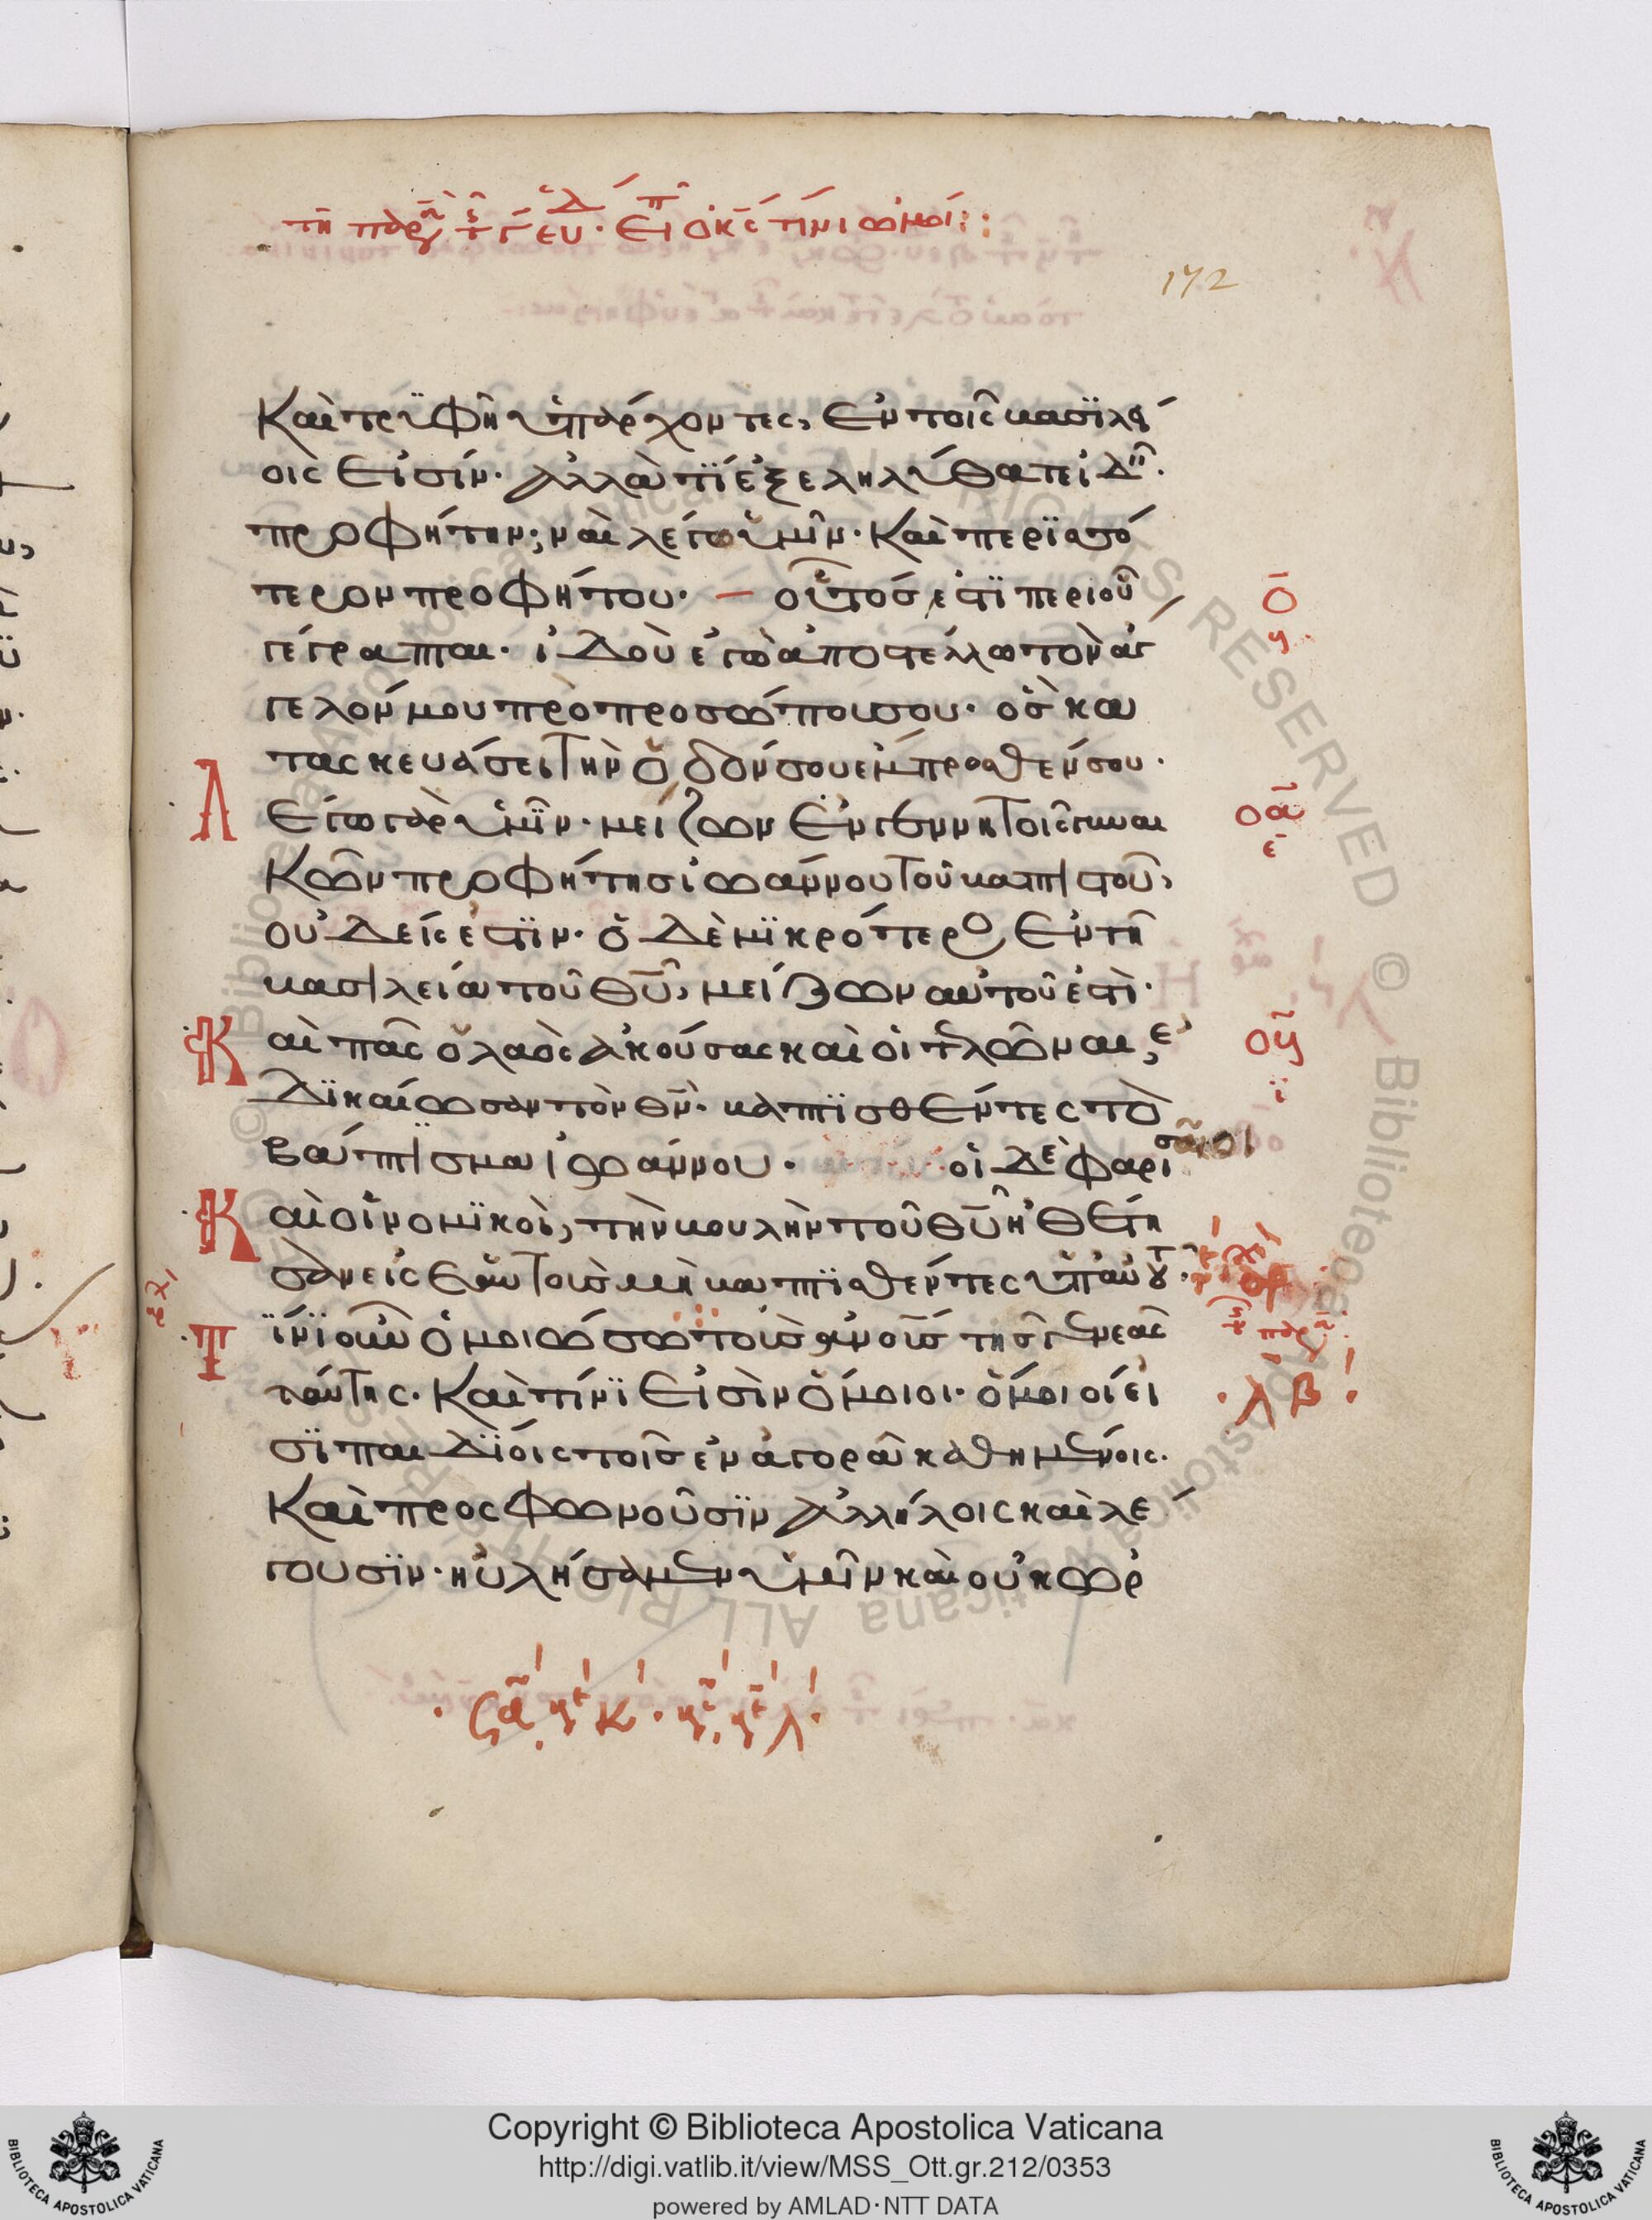 172
Καὶ τρϋφῆ ὑπάρχοντες, ἐν τοῖς βασϊλεί
οις εἰσίν. ἀλλὰ τί ἐξεληλύθατε ἰδεῖν.
προφήτην; ναὶ λέγω ὑμῖν. Καὶ περϊσσό
τερον προφήτου. οὗτός ἐστϊ περὶ οὗ
γέγραπται. ἰδοὺ ἐγὼ ἀποστέλλω τὸν ἄγ
γελόν μου πρὸ προσώπου σου. ὃς κα
τασκευάσει τὴν ὁδόν σου ἔμπροσθέν σου.
Λέγω γὰρ ὑμῖν. μείζων ἐν γεννητοῖς γυναι
κῶν προφήτης ἰωάννου τοῦ βαπτιστοῦ,
οὐδείς ἐστϊν. ὁ δὲ μϊκρότερος ἐν τῆ
βασιλεία τοῦ θῦ, μείζων αὐτοῦ ἐστί.
Καὶ πᾶς ὁ λαὸς ἀκούσας καὶ οἱ τελῶναι, ἐ
δϊκαίωσαν τὸν θν. βαπτϊσθέντες τὸ
βάπτισμα ἰωάννου. οἱ δὲ φαρισαῖοι
Καὶ οἱ νομϊκοὶ, τὴν βουλὴν τοῦ θῦ ἠθέτη
σαν εἰς ἑαυτοὺς μὴ βαπτϊσθέντες ὑπ' αὐτοῦ.
Τίνϊ οὖν ὁμοιώσω τοὺς ἀνους τῆς γενεᾶς
ταύτης. Καὶ τίνϊ εἰσὶν ὅμοιοι. ὅμοιοί εἰ
σϊ παιδϊοις τοῖς ἐν ἀγορᾶ καθημένοις.
Καὶ προσφωνοῦσϊν ἀλλήλοις καὶ λέ
γουσϊν. ηὐλήσαμεν ὑμῖν καὶ οὐκ ὠρ
Copyright © Biblioteca Apostolica Vaticana
http://digi.vatlib.it/view/MSS_Ott.gr.212/0353
powered by AMLAD·NTT DATA